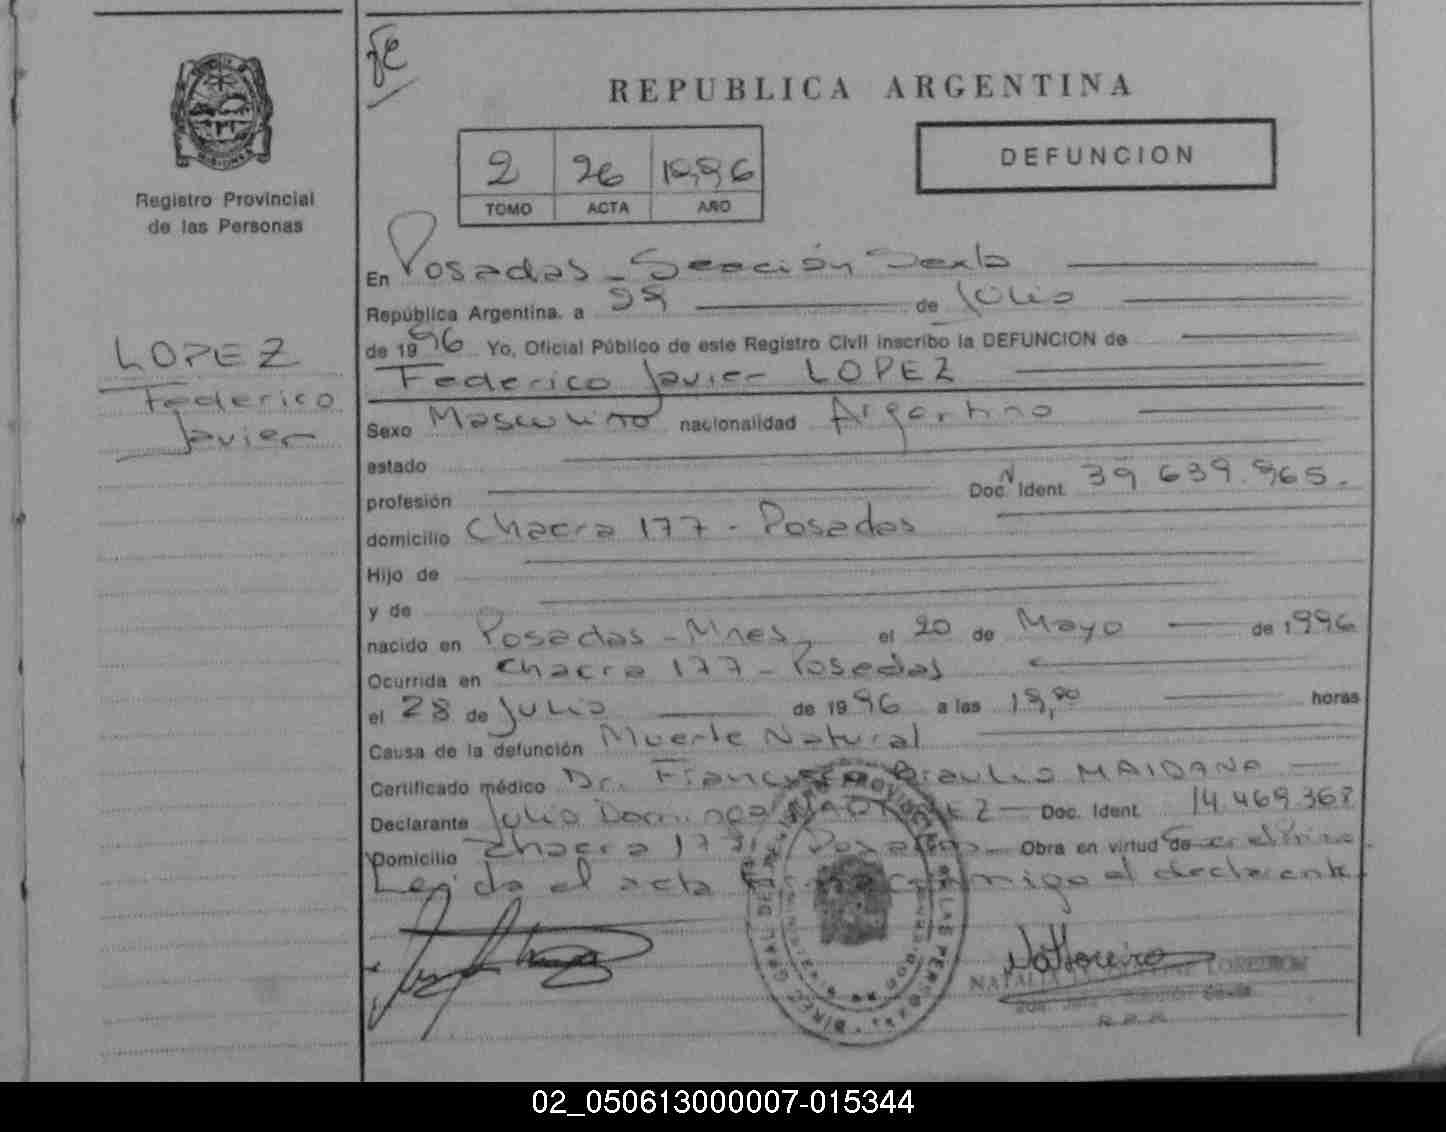 Registro Provincial
de las Personas
LOPEZ
Federico
Javier
REPUBLICA ARGENTINA
DEFUNCION
2 26 1996
TOMO ACTA AÑO
En Posadas - Sección Sexta
República Argentina, a de Julio
de 1996 Yo, Oficial Público de este Registro Civil inscribo la DEFUNCION de
Federico Javier LOPEZ
Sexo Masculino nacionalidad Argentino
estado
profesión Doc. Ident. 39 639.965.
domicilio Chacra 177 - Posadas
Hijo de
y de
nacido en Posadas - Mnes, el 20 de Mayo de 1996
Ocurrida en Chacra 177 - Posadas
el 28 de Julio de 1996 a las horas
Causa de la defunción Muerte Natural
Certificado médico Dr. Francisco Braulio MAIDANA
Declarante Julio Domingo Doc. Ident. 14.469.368
Domicilio Chacra 177 Posadas Obra en virtud de
Leída el acta conmigo el declarante
NATALIA
R.P.P.
02_050613000007-015344